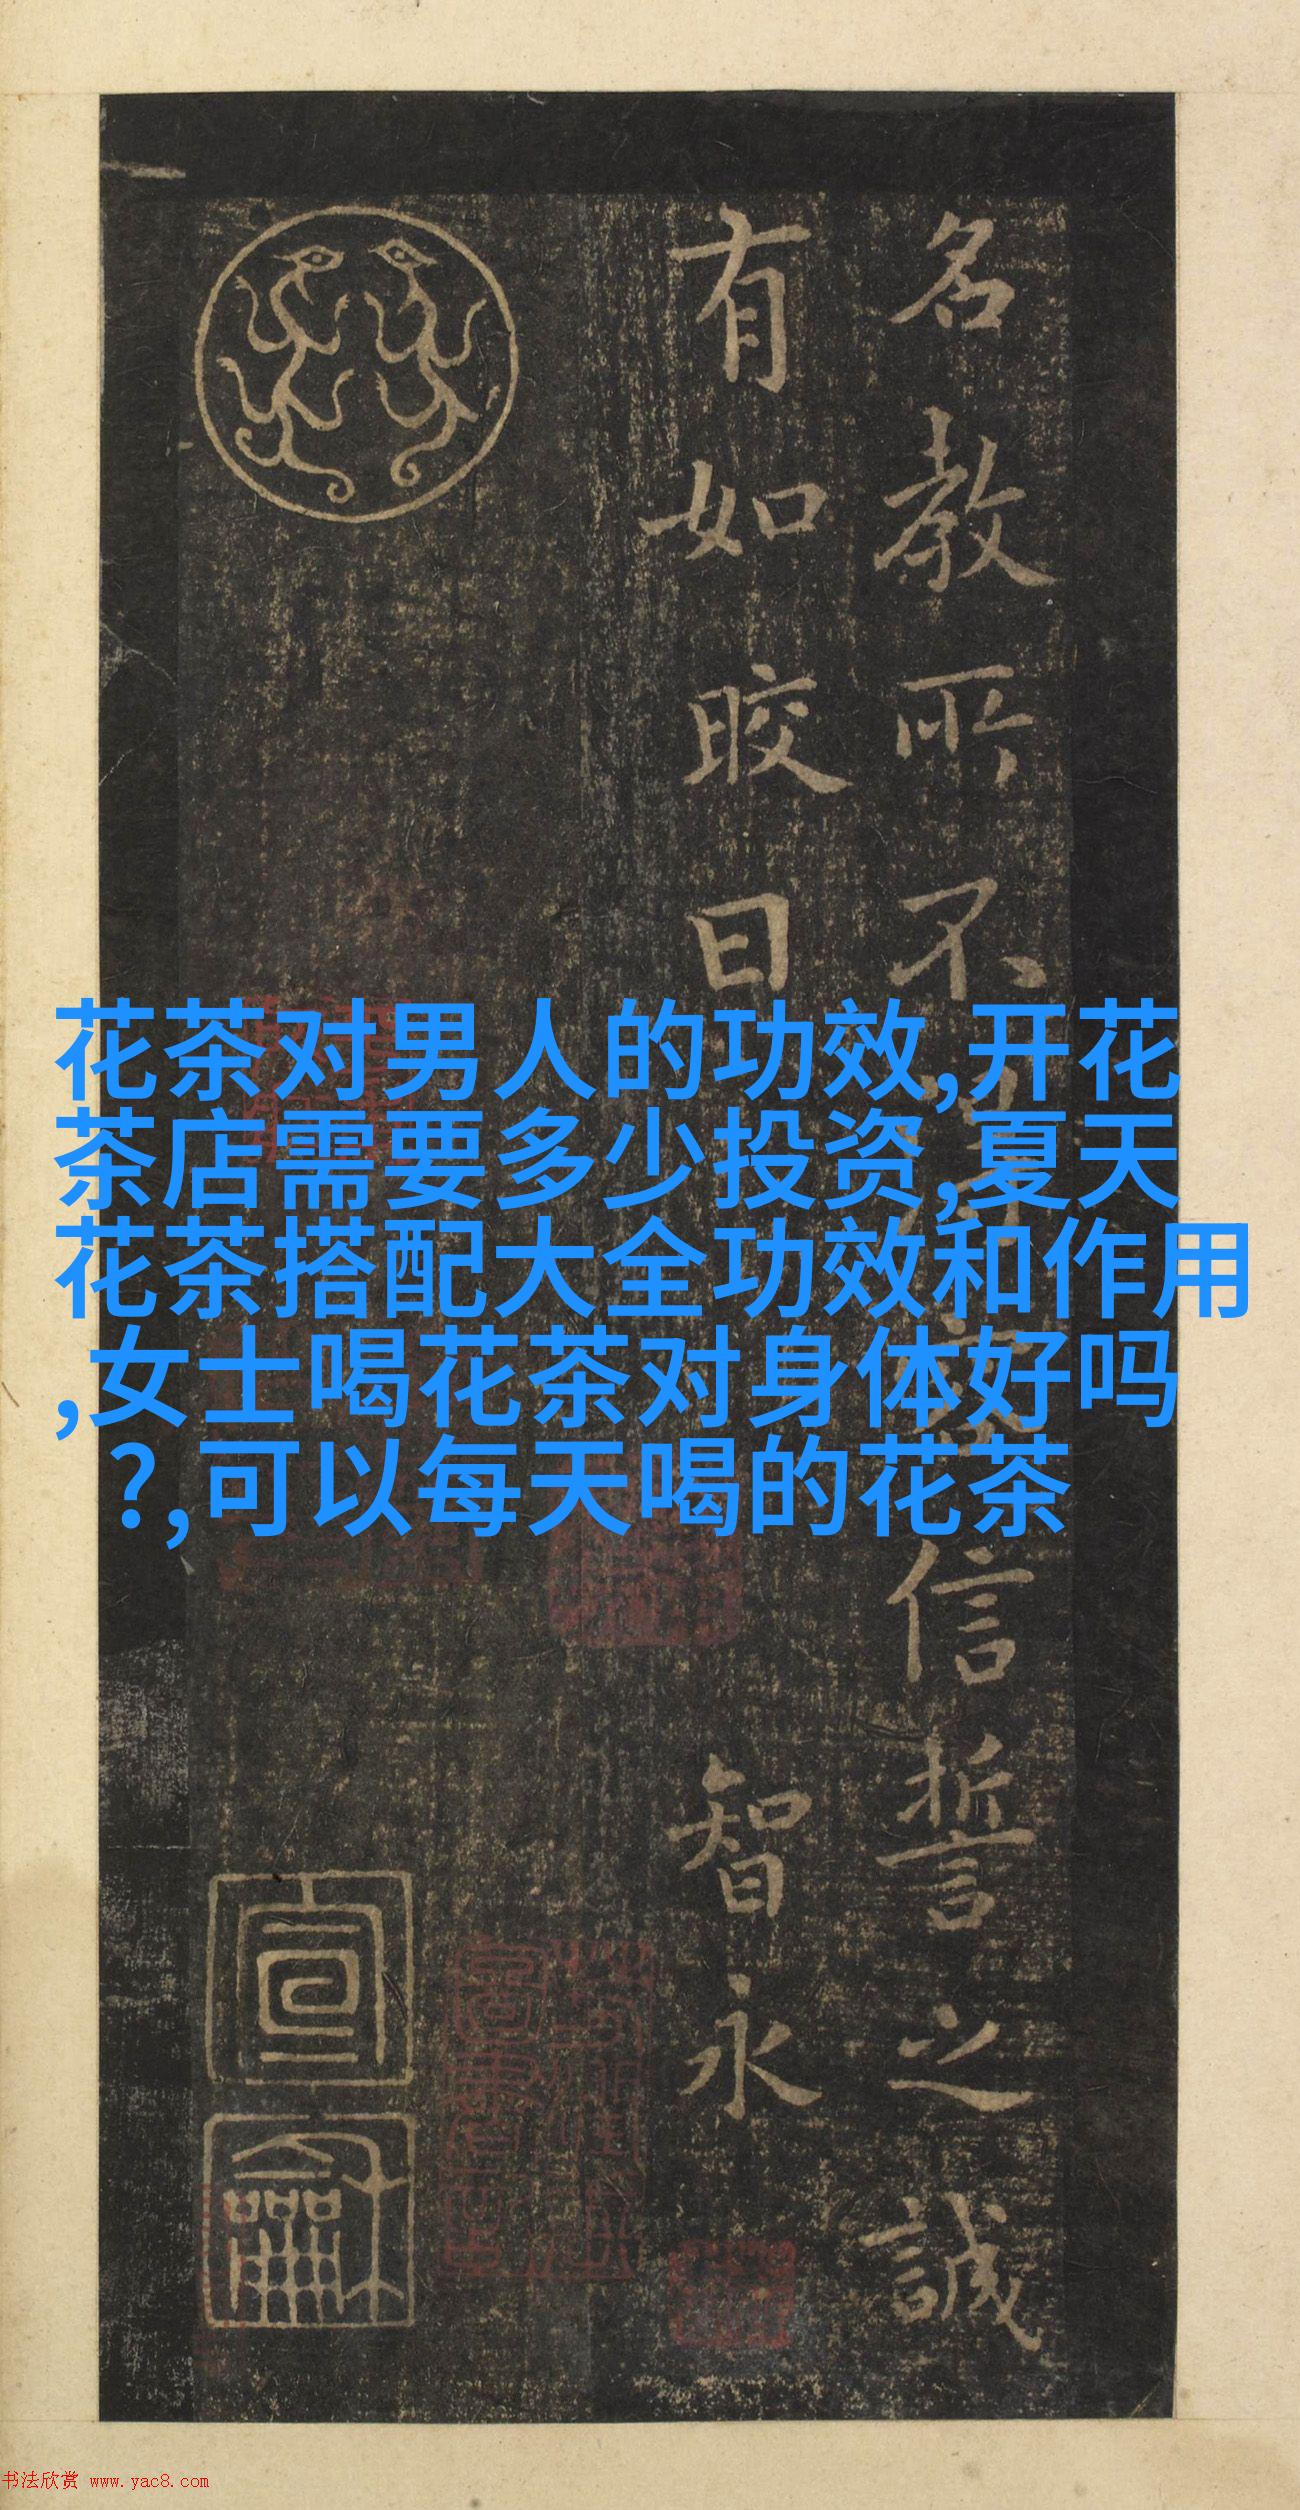 名教所不
信誓之誠
有如晈日
智永
花茶对男人的功效,开花
茶店需要多少投资,夏天
花茶搭配大全功效和作用
,女士喝花茶对身体好吗
?,可以每天喝的花茶
书法欣赏 www.yac8.com